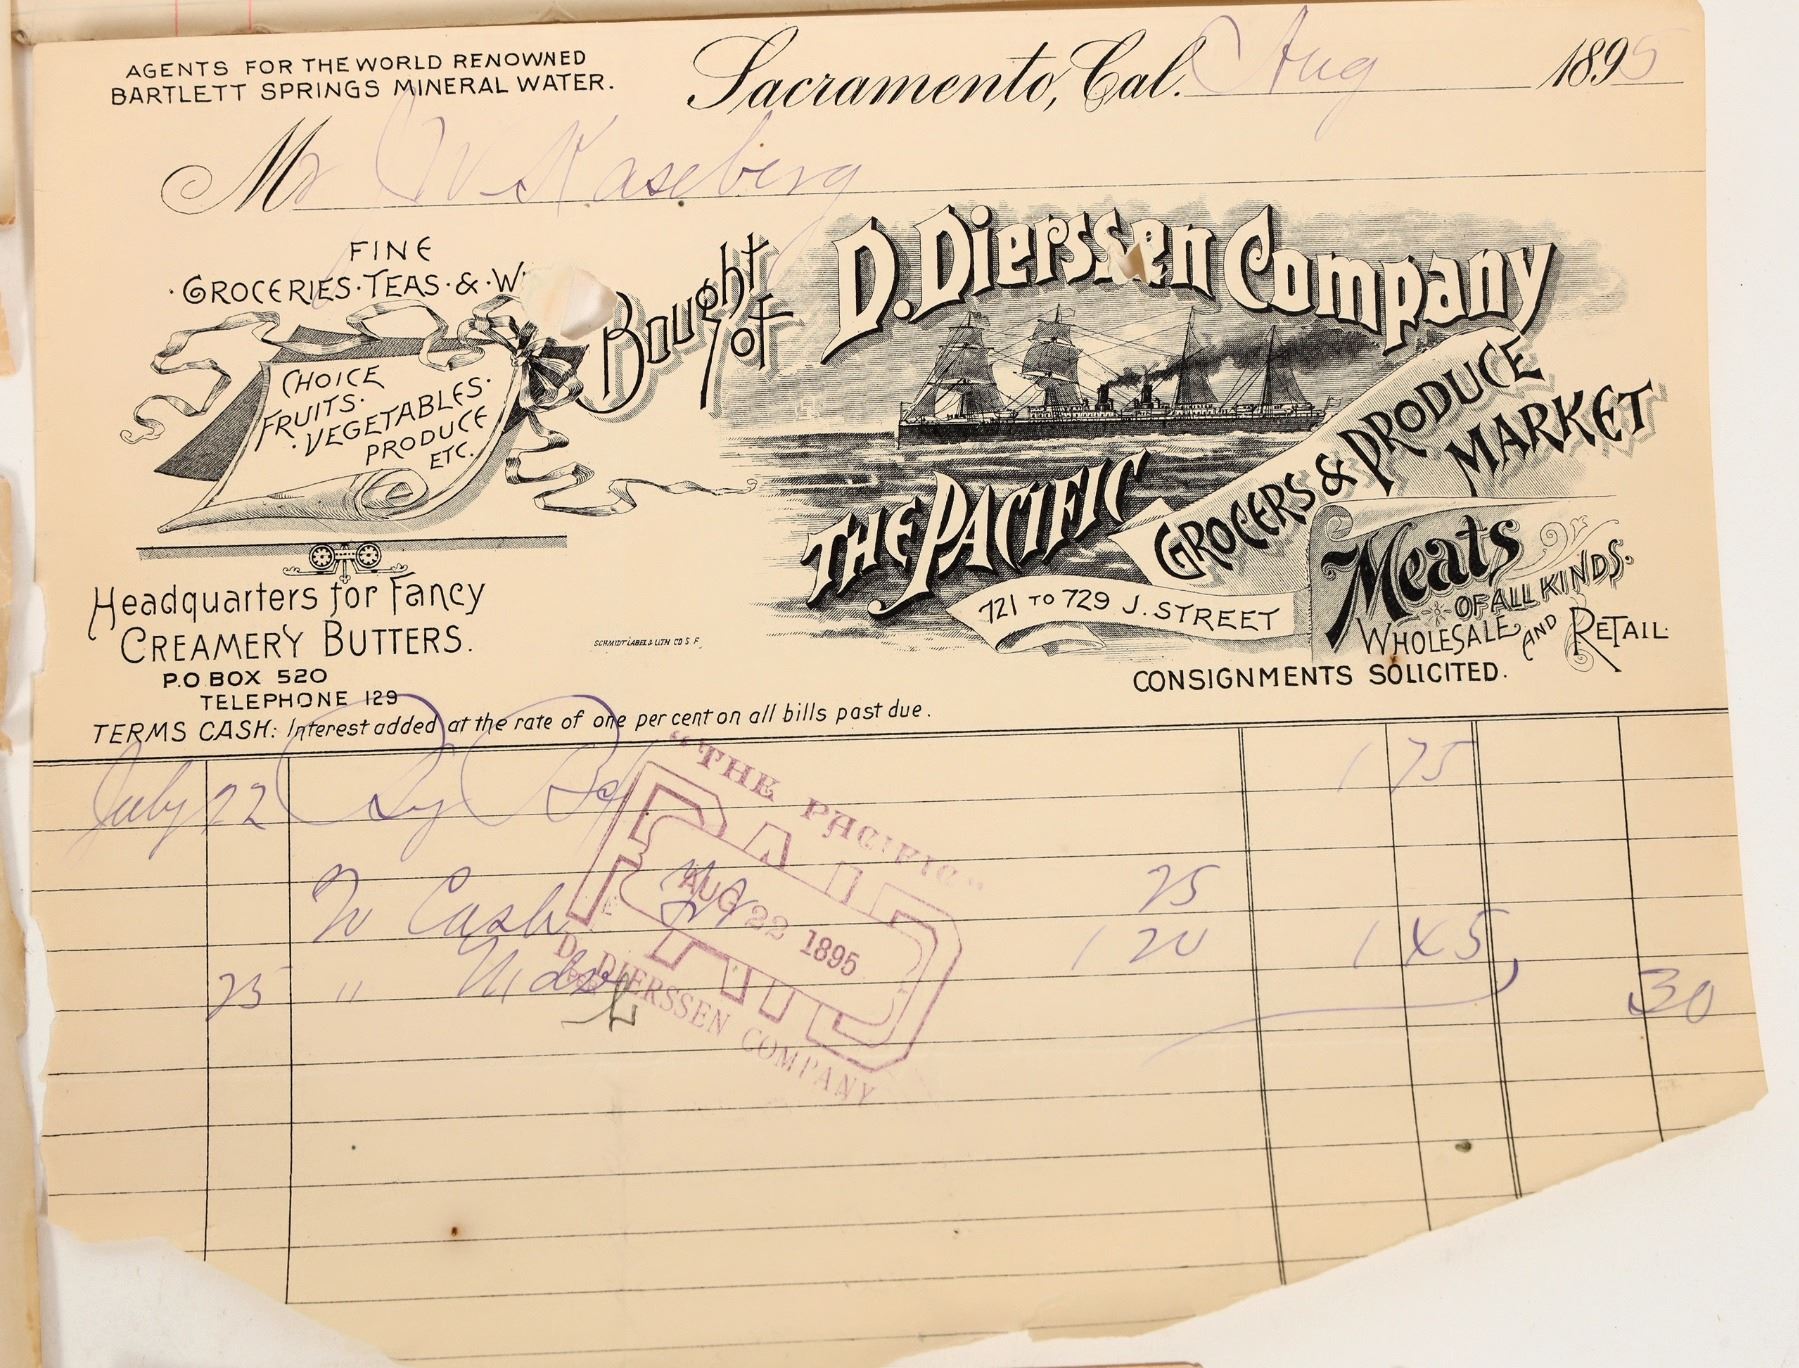 AGENTS FOR THE WORLD RENOWNED
BARTLETT SPRINGS MINERAL WATER.
Sacramento, Cal. Aug 1895
Mr W Kaseberg
FINE
·GROCERIES·TEAS·&·W
CHOICE
FRUITS·
·VEGETABLES·
PRODUCE
ETC.
Bought of
D. Dierssen Company
THE PACIFIC
GROCERS & PRODUCE
MARKET
721 TO 729 J. STREET
Meats
OF ALL KINDS.
WHOLESALE AND RETAIL.
CONSIGNMENTS SOLICITED.
Headquarters for Fancy
CREAMERY BUTTERS.
P.O. BOX 520
TELEPHONE 129
SCHMIDT LABEL & LITH CO S.F.
TERMS CASH: Interest added at the rate of one per cent on all bills past due.
July 22 By 1 75
Cash 25
25 " 1 20 1 45
30
"THE PACIFIC"
PAID
AUG 22 1895
D. DIERSSEN COMPANY